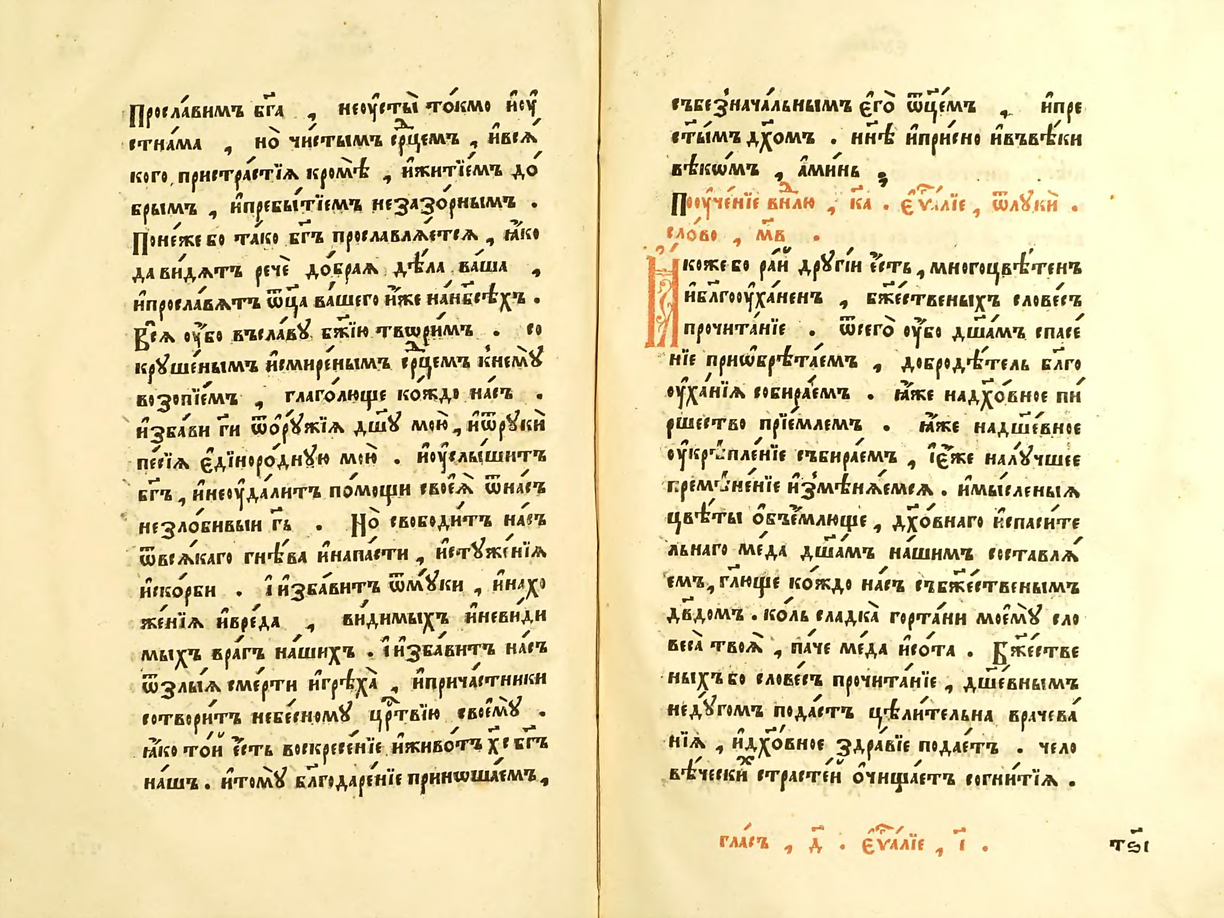 Просла́вимъ бг҃а , неоу҆сты̀ то́кмо и҆оу҆
стна́ма , но̀ чи́стымъ ср҃дцемъ , и҆вся́
кого пристра́стїѧ кромѣ̀ , и҆житїе́мъ до́
брымъ , и҆пребы́тїемъ незазо́рнымъ .
Поне́же бо та́ко бг҃ъ прославлѧ́етсѧ , ꙗ҆́ко
да ви́дѧтъ речѐ до́браѧ дѣ́ла ва́ша ,
и҆просла́вѧтъ ѿц҃а ва́шего и҆́же на́нб҃сѣхъ .
Всѧ̀ оу҆́бо въсла́вꙋ бж҃їю твори́мъ . со
крꙋше́нымъ и҆смире́нымъ ср҃дцемъ к̾немꙋ̀
возопїе́мъ , глаго́люще ко́ждо на́съ .
и҆зба́ви гд҃и ѿѻ҆рꙋ́жїѧ дш҃ꙋ мою̀ , и҆ѿрꙋки̑
пе́сїѧ є҆дїноро́днꙋю мою̀ . и҆оу҆слы́шитъ
бг҃ъ , и҆неоу҆да́литъ по́мощи своеѧ̀ ѿна́съ
незло́бивыи гд҃ь . Но̀ свободи́тъ на́съ
ѿвсѧ́каго гнѣ́ва и҆напа́сти , и҆стꙋже́нїѧ
и҆ско́рби . і҆и҆зба́витъ ѿмꙋ́ки , и҆нахо
же́нїѧ и҆вре́да , ви́димыхъ и҆неви́ди
мыхъ вра́гъ на́шихъ . і҆и҆зба́витъ на́съ
ѿзлы́ѧ сме́рти и҆грѣха̀ , и҆прича́стники
сотвори́тъ небе́сномꙋ црⷭ҇твїю своемꙋ̀ .
ꙗ҆́ко то́й є҆́сть воскресе́нїе и҆живо́тъ хс҃ бг҃ъ
на́шъ . и҆томꙋ̀ благодаре́нїе принѡша́емъ ,
събезнача́льнымъ є҆гѡ̀ ѿц҃емъ , и҆пре
ст҃ы́мъ дх҃омъ . ннѣ҃ и҆при́сно и҆въвѣ́ки
вѣкѡ́мъ , а҆ми́нь .
Пооуче́нїе внⷣлю , ка҃ . є҆ѵⷢ҇лїе , ѿлꙋкѝ .
сло́во , мв҃ .
И҆́кожебо ра́й дрꙋгі́и є҆́сть , многоцвѣ́тенъ
и҆бл҃гооу҆ха́ненъ , бж҃е́ственыхъ слове́съ
прочита́нїе . ѿсего̀ оу҆́бо дш҃а́мъ спасе́
нїе приѡбрѣта́емъ , добродѣ́тель бл҃го
оу҆ха́нїѧ собира́емъ . ꙗ҆́же надх҃о́вное пи́
ршество прїе́млемъ . ꙗ҆́же надш҃е́вное
оу҆крѣпле́нїе събира́емъ , і҆є҆́же налꙋ́чшее
премѣне́нїе и҆змѣнѧ́емсѧ . и҆мы́сленыѧ
цвѣ́ты ѻ҆бъе́млюще , дх҃о́внаго и҆спаси́те
льнаго ме́да дш҃а́мъ на́шимъ составлѧ́
емъ , гл҃юще ко́ждо на́съ събж҃е́ственымъ
дв҃домъ . ко́ль сладка̀ горта́ни моемꙋ̀ сло
веса̀ твоѧ̀ , па́че ме́да и҆со́та . Бж҃е́стве
ныхъбо слове́съ прочита́нїе , дш҃е́внымъ
недꙋ́гомъ пода́стъ цѣли́тельна врачева́
нїѧ , и҆дх҃о́вное здра́вїе подае́тъ . чело
вѣ́ческихъ страсте́й ѻ҆чища́етъ согни́тїѧ .
гла́съ , д҃ . є҆ѵⷢ҇лїе , і҃ .
тѕ҃і